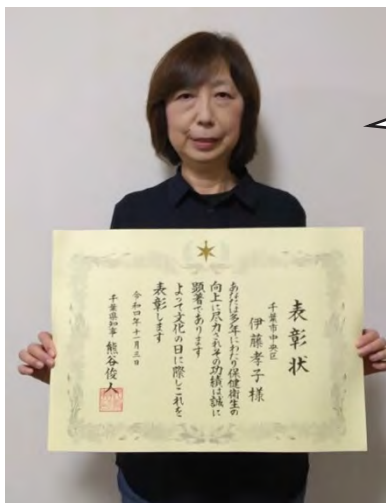 表彰状
千葉市中央区
伊藤孝子様
あなたは多年にわたり保健衛生の
向上に尽力されその功績は誠に
顕著であります
よって文化の日に際しこれを
表彰します
令和四年十一月三日
千葉県知事 熊谷俊人